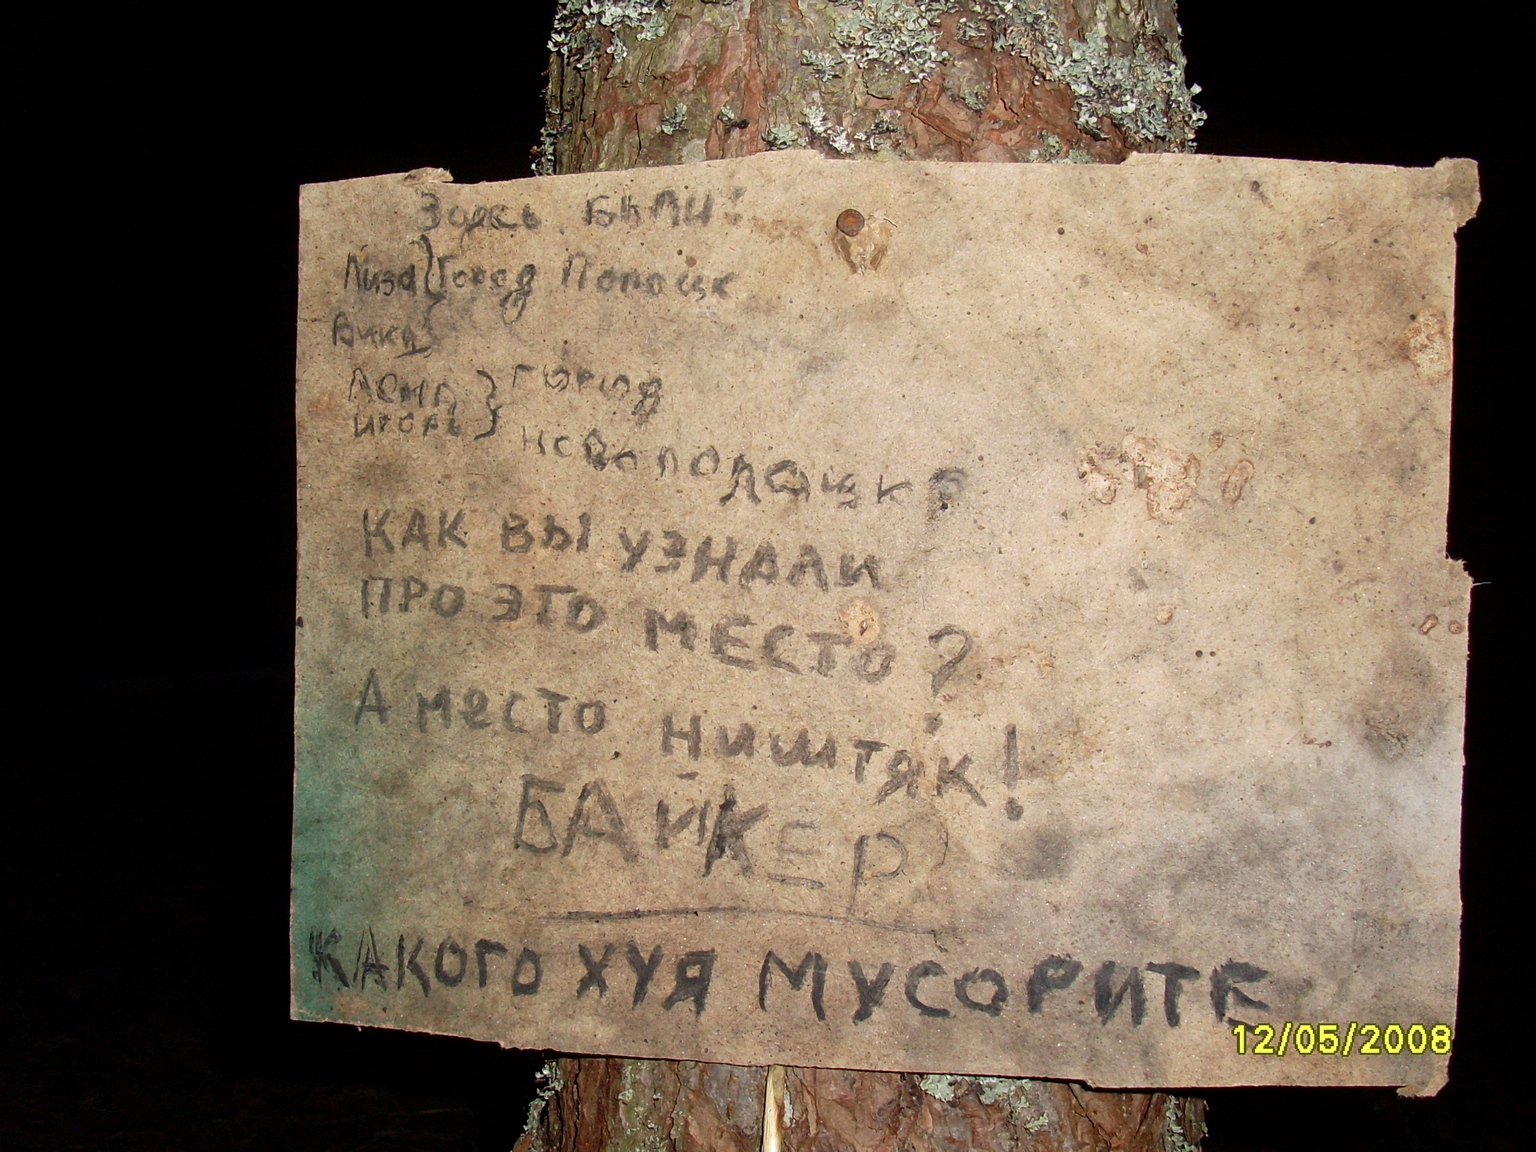 Здесь были:
Лиза } Город Полоцк
Вика
Лена } город
Игорь
Новополоцк
КАК ВЫ УЗНАЛИ
ПРО ЭТО МЕСТО?
А место ништяк!
БАЙКЕР
КАКОГО ХУЯ МУСОРИТЕ
12/05/2008